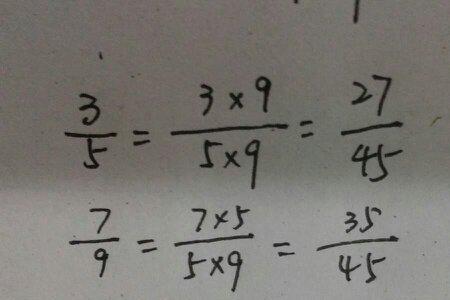 3/5 = 3×9/5×9 = 27/45
7/9 = 7×5/5×9 = 35/45